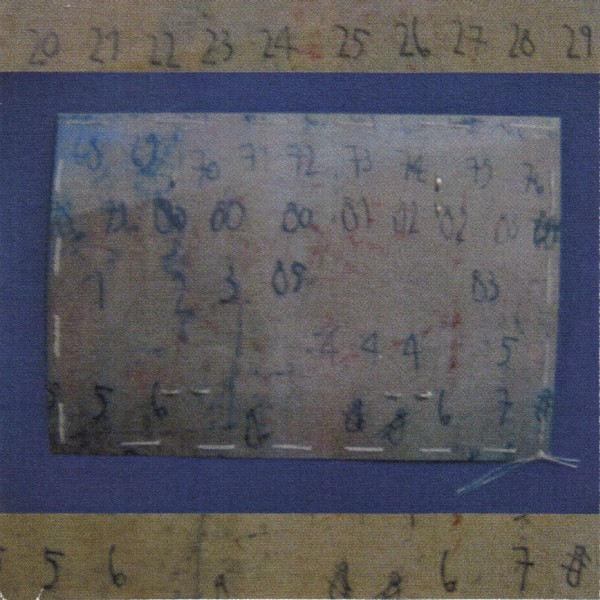 20 21 22 23 24 25 26 27 28 29
68 69 70 71 72 73 74 75 76
79 80 80 80 81 82 82
1 2 3 89 83
4 4 4 5
5 6 8 8 8 6 7 #
5 6 8 8 8 6 7 #